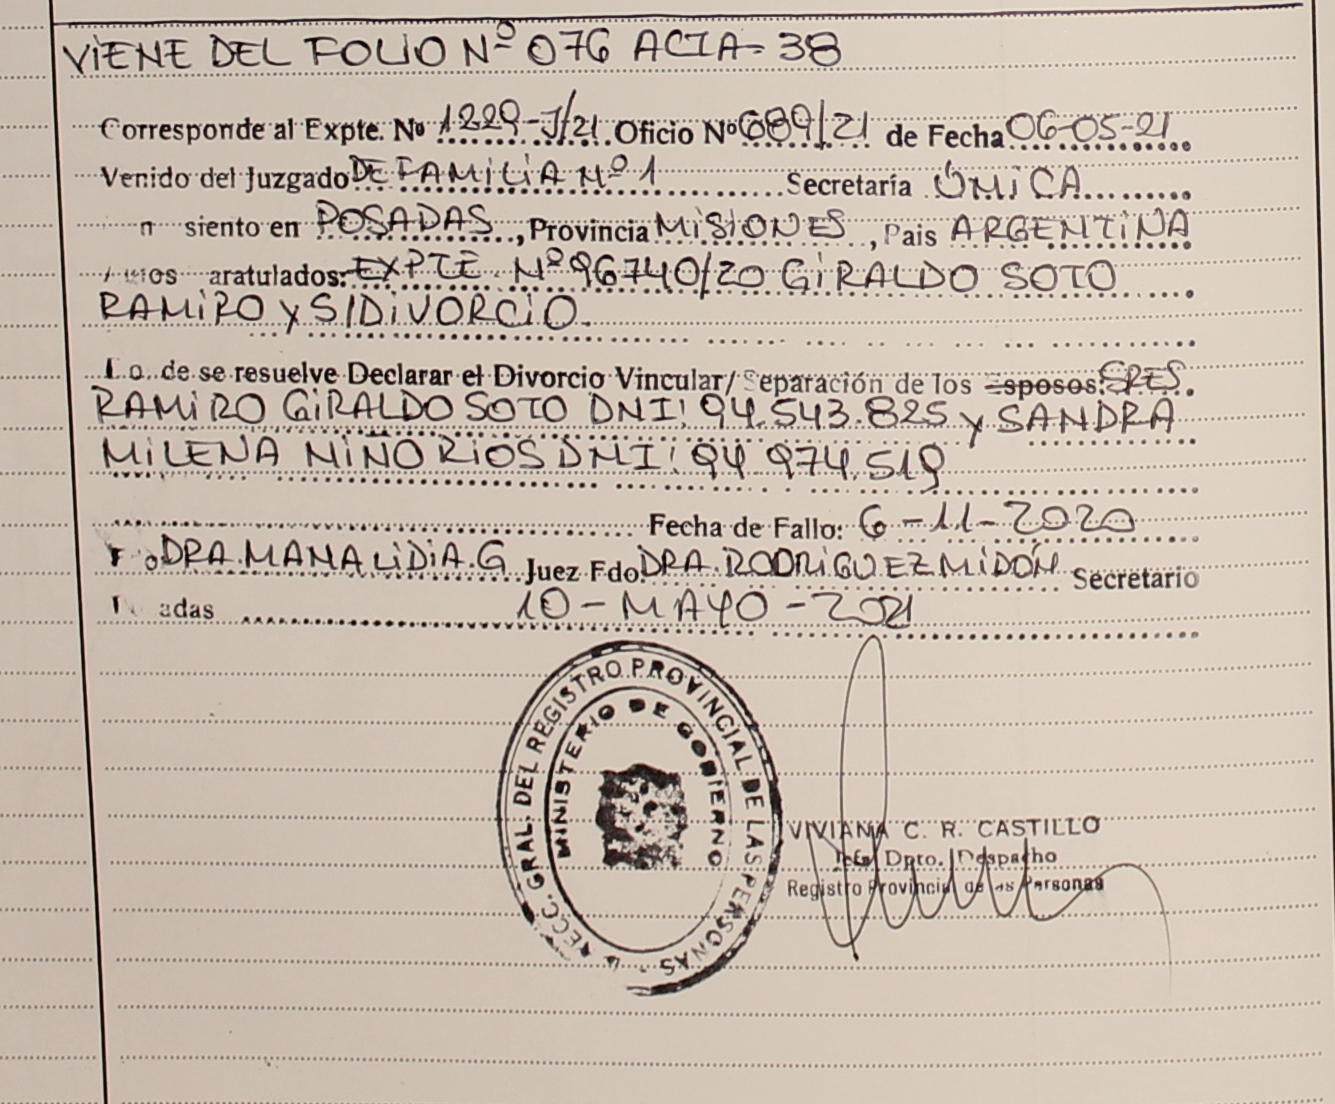 VIENE DEL FOLIO Nº 076 ACTA-38
Corresponde al Expte. Nº 1229-J/21 Oficio Nº 689/21 de Fecha 06-05-21
Venido del Juzgado DE FAMILIA Nº 1 Secretaría ÚNICA
n siento en POSADAS, Provincia MISIONES, Pais ARGENTINA
aratulados: EXPTE Nº 96740/20 GIRALDO SOTO
RAMIRO Y S/DIVORCIO.
de se resuelve Declarar el Divorcio Vincular/ Separación de los Esposos: SRES.
RAMIRO GIRALDO SOTO DNI: 94.543.825 y SANDRA
MILENA NIÑO RIOS DNI: 94 974.519
Fecha de Fallo: 6-11-2020
DRA. MANA LIDIA. G Juez Fdo. DRA. RODRIGUEZ MIDÓN Secretario
adas 10-MAYO-2021
DIRECC. GRAL. DEL REGISTRO PROVINCIAL DE LAS PERSONAS
MINISTERIO DE GOBIERNO
VIVIANA C. R. CASTILLO
Jefa Dpto. Despacho
Registro Provincial de las Personas